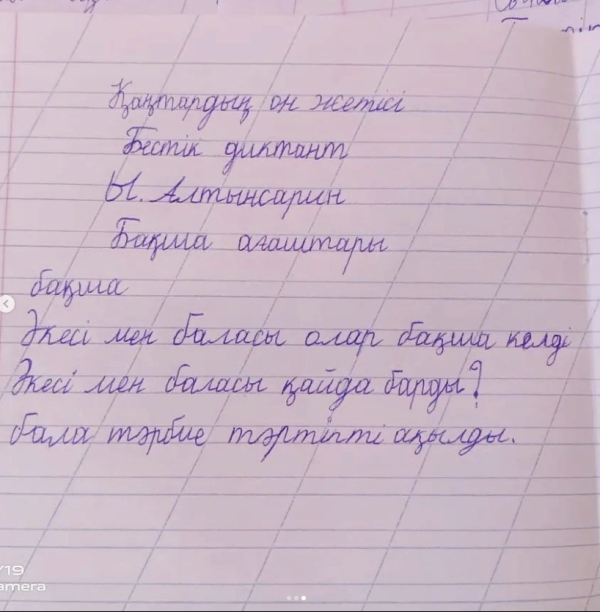 Қаңтардың он жетісі
Бестік диктант
Ы. Алтынсарин
Бақша ағаштары
бақша
Әкесі мен баласы олар бақша келді
Әкесі мен баласы қайда барды?
бала тәрбие тәртіпті ақылды.
/19
amera